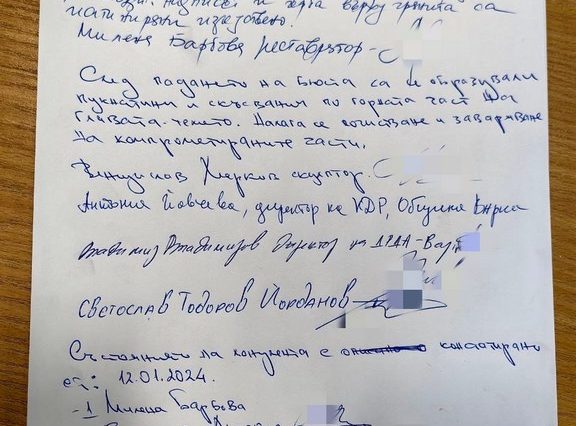 надписи и герба върху гранита са
патинирани изкуствено.
Милена Барбова реставратор -
След падането на бюста са се образували
пукнатини и скъсвания по горната част на
главата - челото. Налага се почистване и заваряване
на компрометираните части.
скулптор.
Антония Йовчева, директор на КДР, Община Варна
Владимир Владимиров Директор на ДРДА - Варна
Светослав Тодоров Йорданов
Състоянието на монумента е констатирано
на: 12.01.2024.
- 1 Милена Барбова